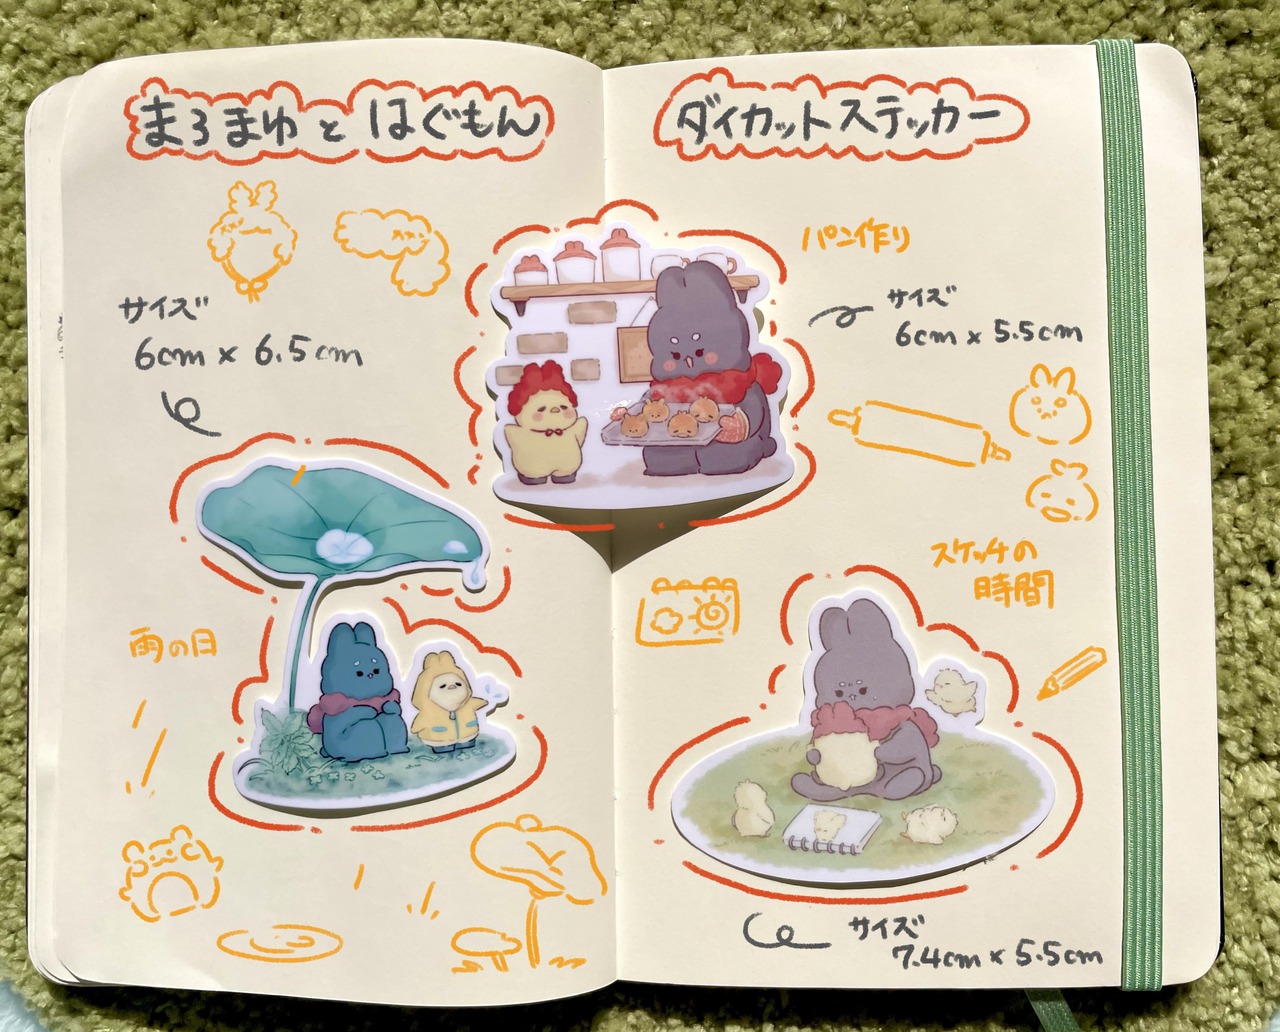 まろまゆとはぐもん
ダイカットステッカー
サイズ
6cm×6.5cm
パン作り
サイズ
6cm×5.5cm
雨の日
スケッチの
時間
サイズ
7.4cm×5.5cm